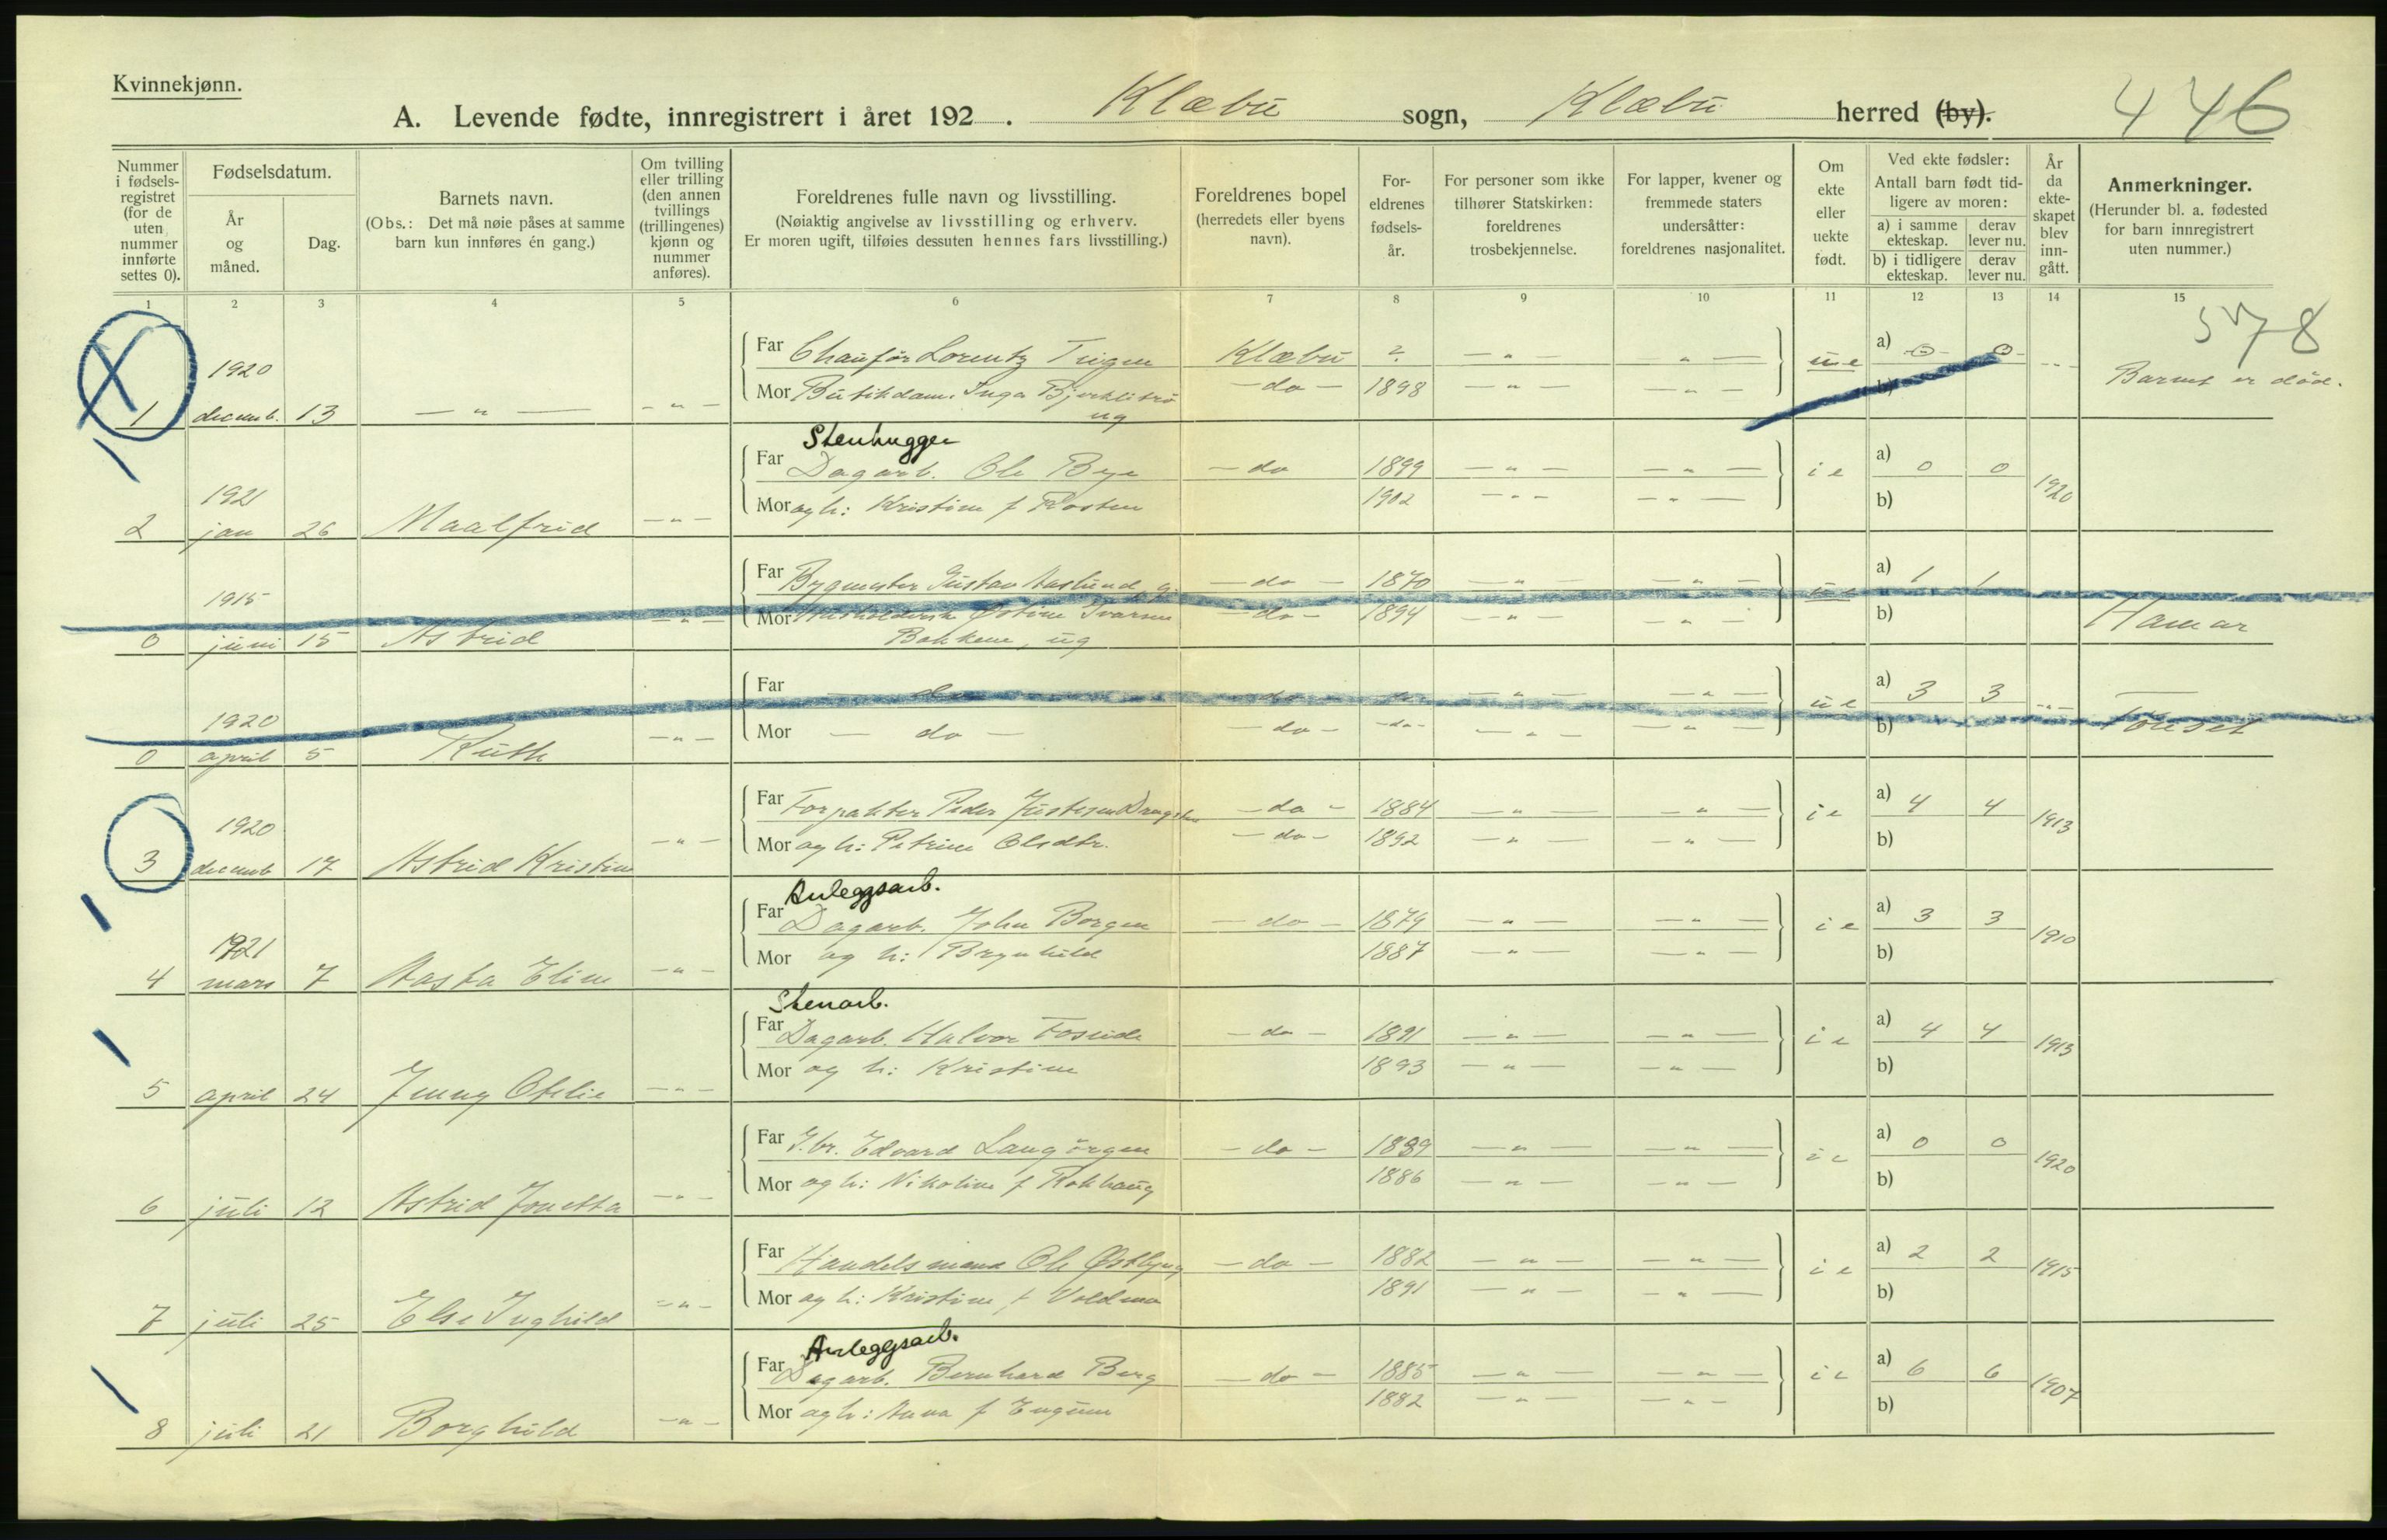 Kvinnekjønn.
A. Levende fødte, innregistrert i året 192 . Klæbu sogn, Klæbu herred (by). 446
Nummer i fødsels-registret (for de uten nummer innførte settes 0).
Fødselsdatum.
År og måned.
Dag.
Barnets navn.
(Obs.: Det må nøie påses at samme barn kun innføres én gang.)
Om tvilling eller trilling (den annen tvillings (trillingenes) kjønn og nummer anføres).
Foreldrenes fulle navn og livsstilling.
(Nøiaktig angivelse av livsstilling og erhverv.
Er moren ugift, tilføies dessuten hennes fars livsstilling.)
Foreldrenes bopel
(herredets eller byens navn).
For-eldrenes fødsels-år.
For personer som ikke tilhører Statskirken: foreldrenes trosbekjennelse.
For lapper, kvener og fremmede staters undersåtter: foreldrenes nasjonalitet.
Om ekte eller uekte født.
Ved ekte fødsler:
Antall barn født tid-ligere av moren:
a) i samme ekteskap. derav lever nu.
b) i tidligere ekteskap. derav lever nu.
År da ekte-skapet blev inn-gått.
Anmerkninger.
(Herunder bl. a. fødested for barn innregistrert uten nummer.)
1 2 3 4 5 6 7 8 9 10 11 12 13 14 15
578
Far Chauför Lorentz Klæbu ? — " — — " — a) 0 0
1920 ue Barnet er död.
Mor Inga — do — 1898 — " — — " — b)
1 decemb. 13 — " — — " — ug
Stenhugger
Far Dagarb. Ole Bye — do 1899 — " — — " — i e a) 0 0
1921 1920
Mor og h: Kristine f Rosten 1902 — " — — " — b)
2 jan 26 Maalfrid — " —
Far Bygmester Gustav Aaslund — do — 1870 — " — — " — u e a) 1 1
1915
Mor Ivarsen — do — 1894 — " — — " — b) Hamar
0 juni 15 Astrid — " — Bakken, ug
Far — do — — do — — " — — " — u e a) 3 3
1920
Mor — do — — do — — do — — " — — " — b)
0 april 5 Ruth — " —
Far Forpakter Peder — do — 1884 — " — — " — i e a) 4 4
1920 1913
Mor og h: Petrine Olsdtr. — do — 1892 — " — — " — b)
3 decemb 17 Astrid Kristine — " —
Anleggsarb.
Far Dagarb. John Borgen — do — 1879 — " — — " — i e a) 3 3
1921 1910
Mor og h: Brynhild 1887 — " — — " — b)
4 mars 7 Aasta Eline — " —
Stenarb.
Far Dagarb. Halvor Foseide — do — 1891 — " — — " — i e a) 4 4
1913
Mor og h: Kristine 1893 — " — — " — b)
5 april 24 Jenny Otelie — " —
Far G.br. Edvard Langörgen — do — 1889 — " — — " — i e a) 0 0
1920
Mor og h: Nikoline f Rokhaug 1886 — " — — " — b)
6 juli 12 Astrid Jonetta — " —
Far Handelsmand Ole Østbyng — do — 1882 — " — — " — i e a) 2 2
1915
Mor og h: Kristine f Voldmo 1891 — " — — " — b)
7 juli 25 Else Inghild — " —
Anleggsarb.
Far Dagarb. Bernhard Berg — do — 1885 — " — — " — i e a) 6 6
1907
Mor og h: Anna f 1882 — " — — " — b)
8 juli 21 Borghild — " —